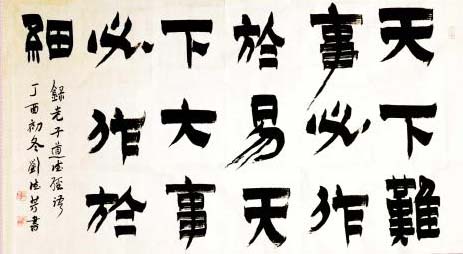 天下難
事必作
於易天
下大事
必作於
細
錄老子道德經語
丁酉初冬劉德芳書